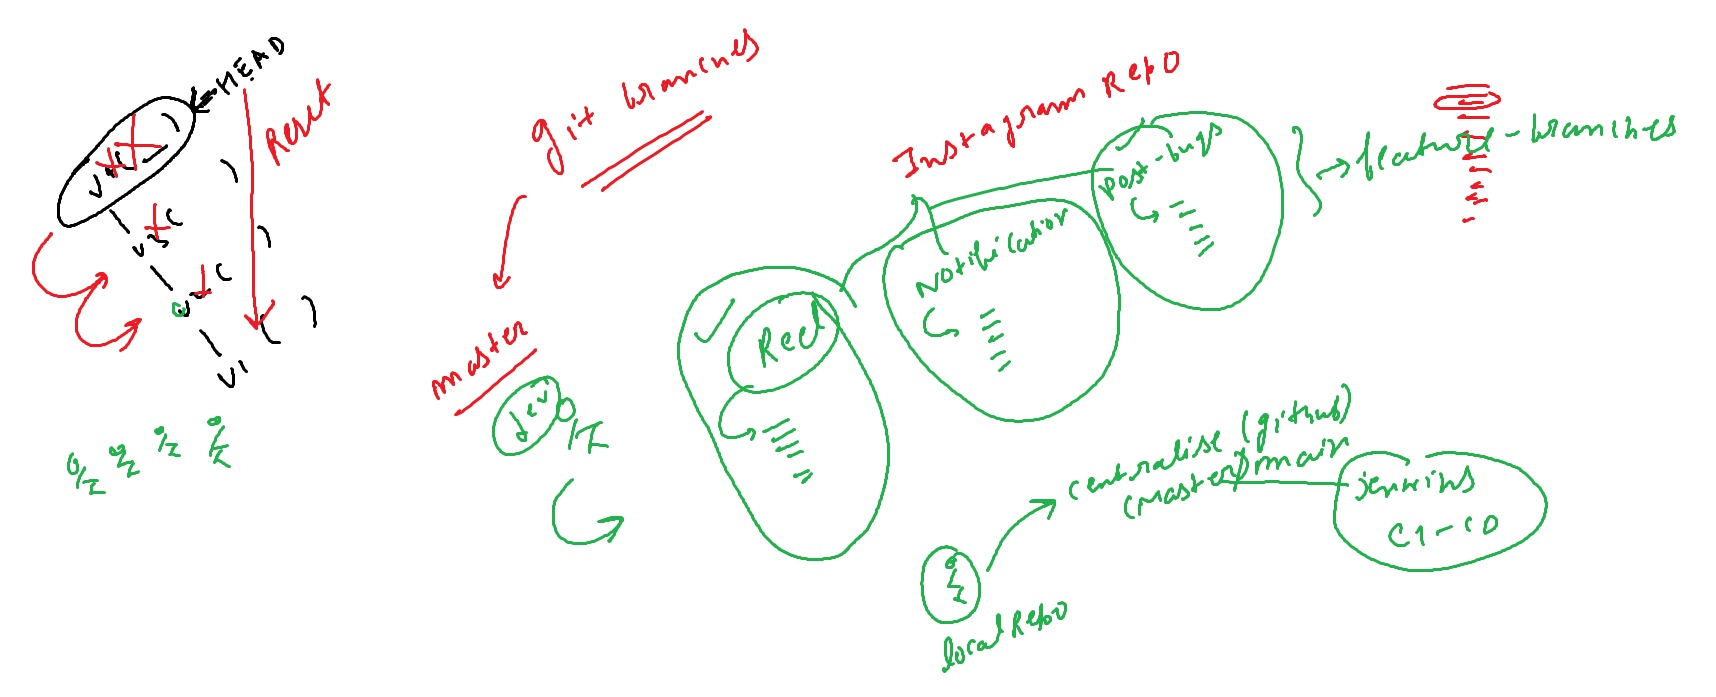 HEAD
Reset
v3c
v1
git branches
master
dev
Instagram Repo
Reel
Notification
Post-bugs
feature-branches
centralise (github)
(master) main
jenkins
CI-CD
local Repo